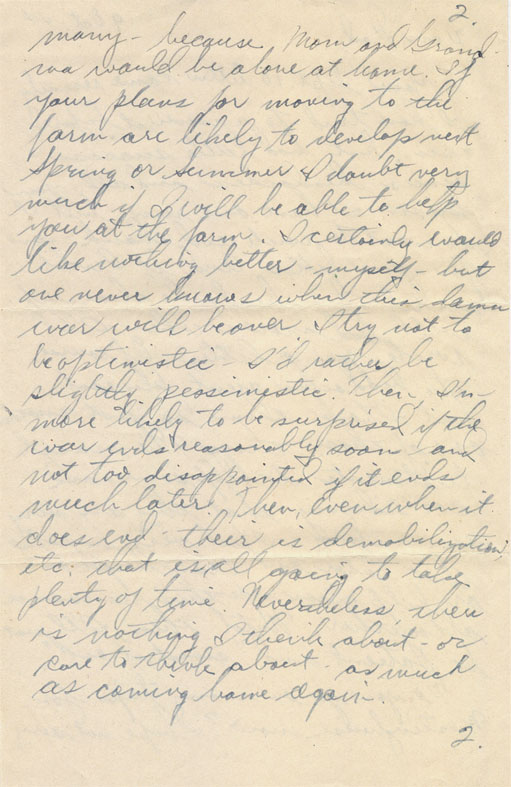 2.
many - because Mom and Grand-
ma would be alone at home. If
your plans for moving to the
farm are likely to develop next
Spring or Summer I doubt very
much if I will be able to help
you at the farm. I certainly would
like nothing better - myself - but
one never knows when this damn
war will be over. I try not to
be optimistic - I'd rather be
slightly pessimistic. Then, I'm
more likely to be surprised if the
war ends reasonably soon and
not too disappointed if it ends
much later. Then, even when it
does end - their is demobilization,
etc: that is all going to take
plenty of time. Nevertheless, there
is nothing I think about - or
care to think about - as much
as coming home again.
2.